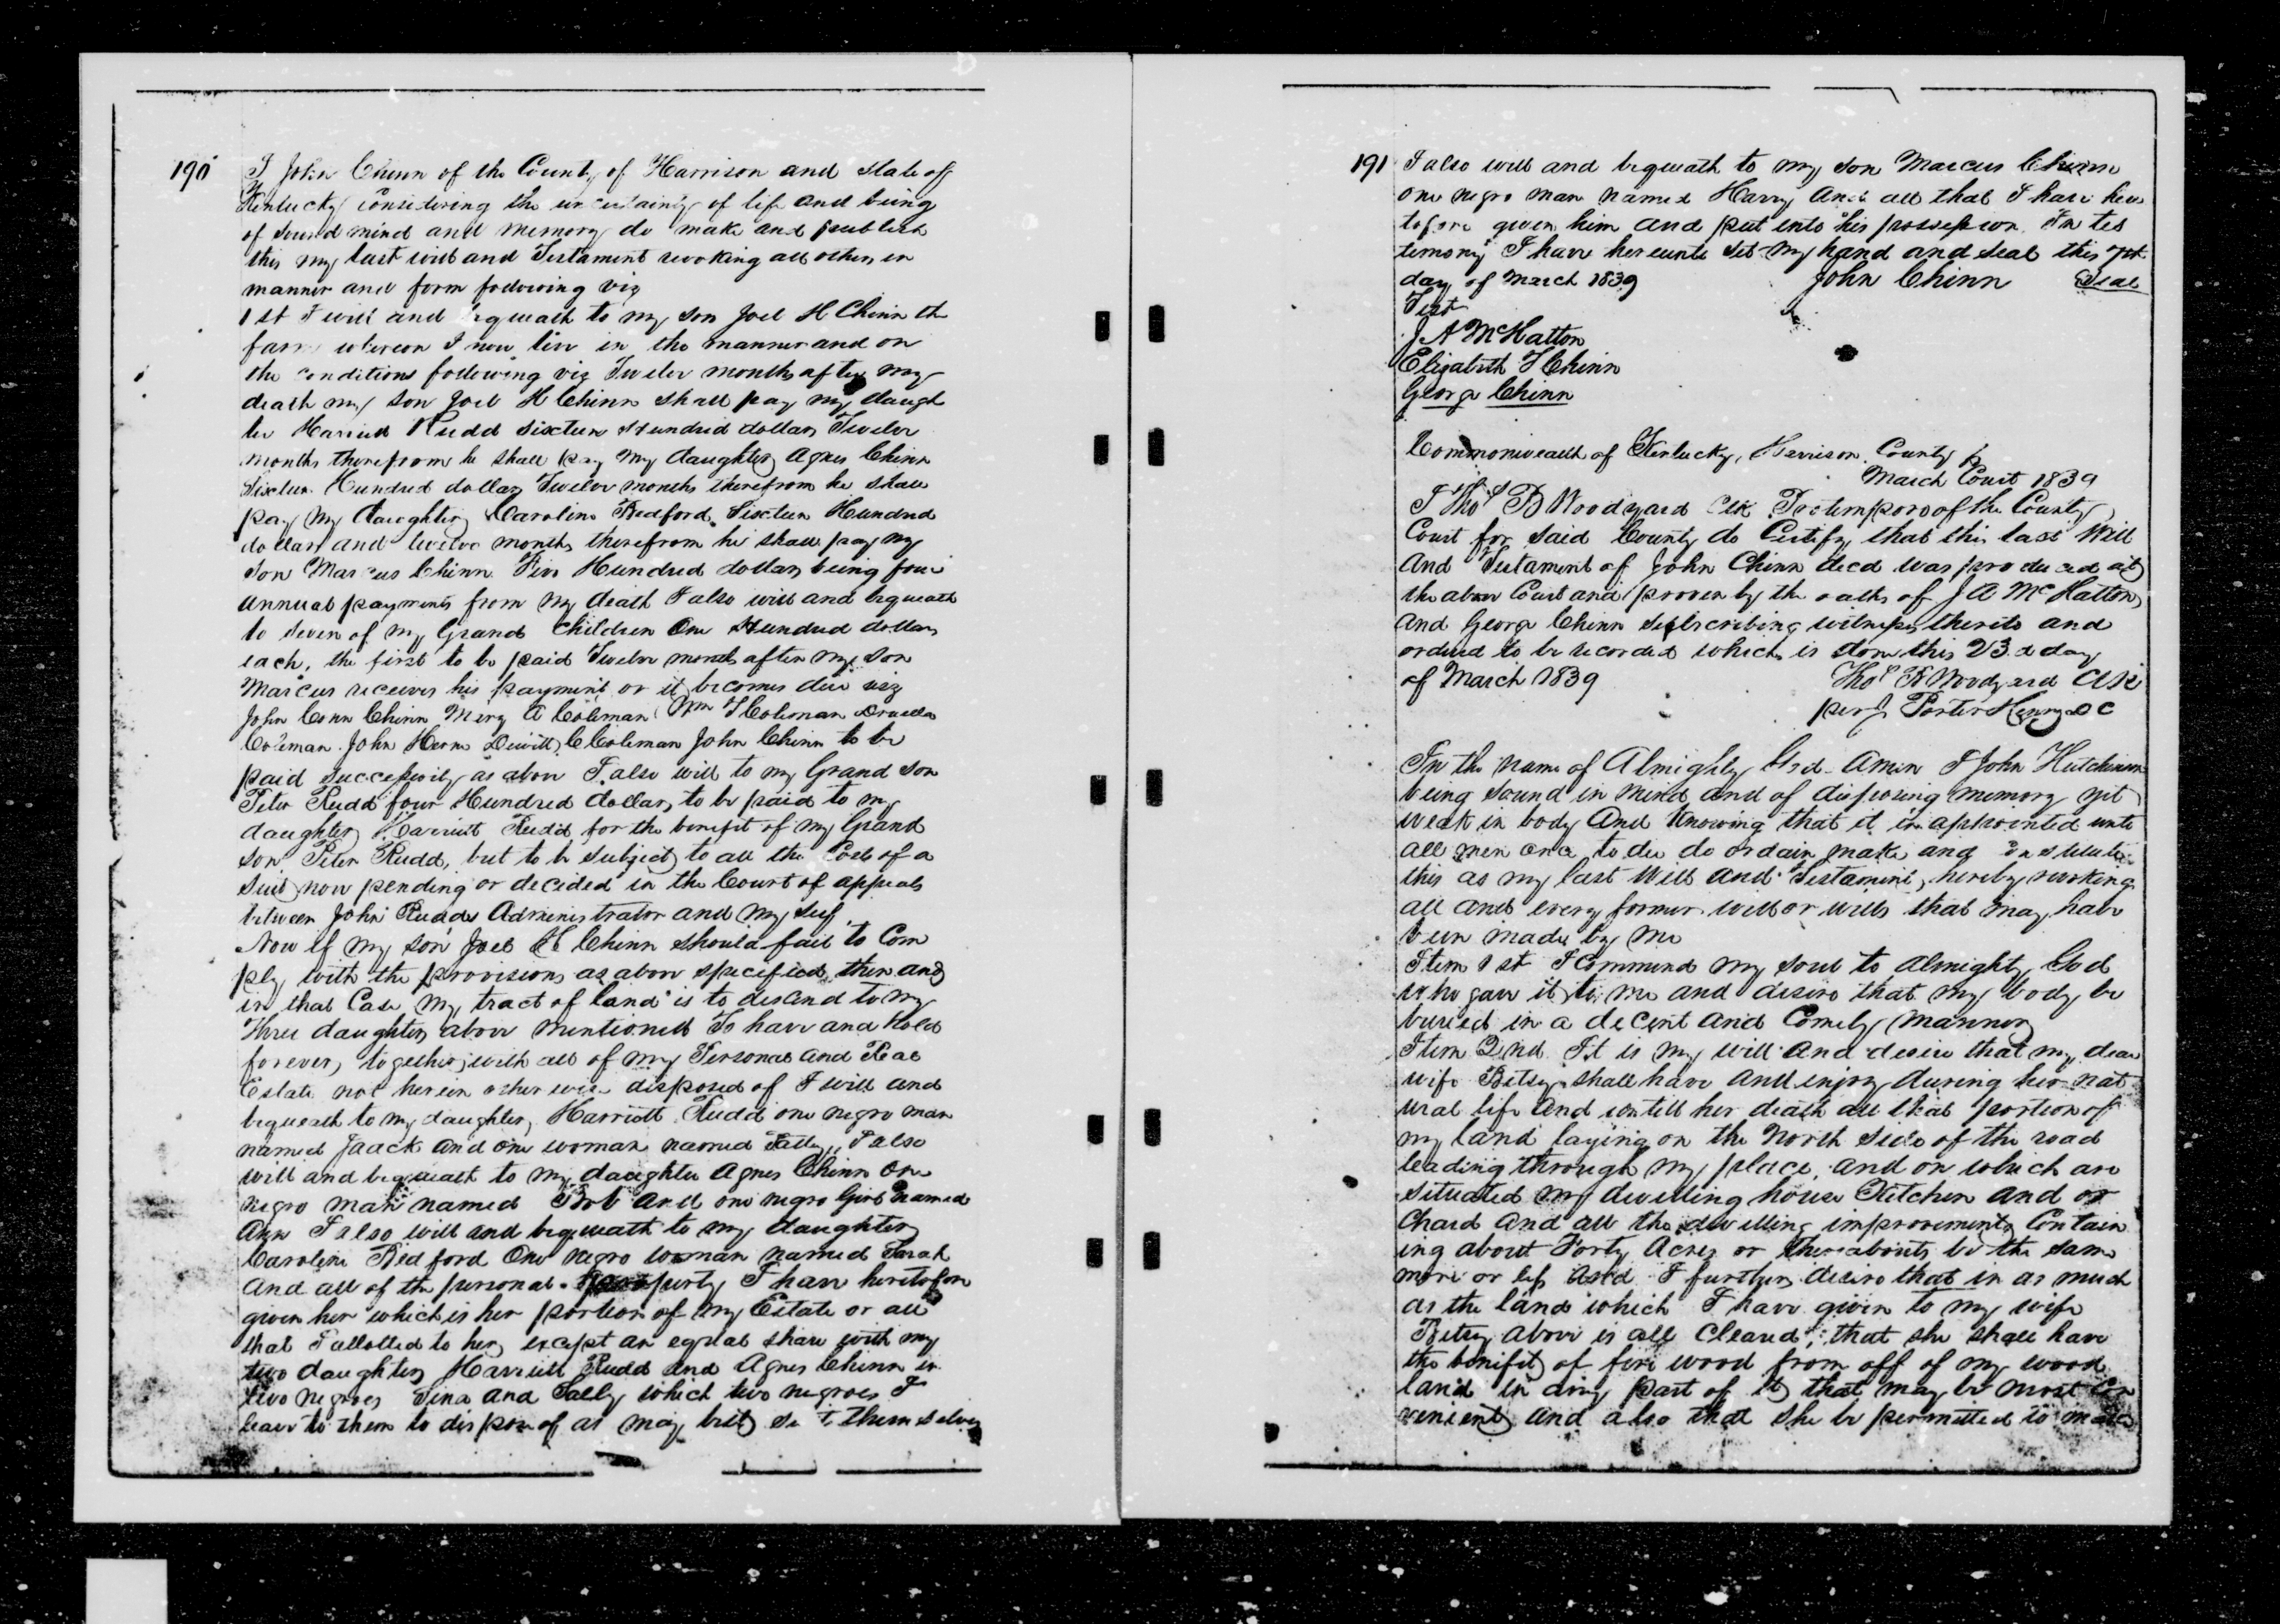 190
I John Chinn of the County of Harrison and State of
Kentucky Considering the uncertainty of life and being
of Sound mind and memory do make and publish
this my last will and Testament revoking all others in
manner and form following viz
1st I will and bequeath to my son Joel H Chinn the
farm whereon I now live in the manner and on
the conditions following viz Twelve months after my
death my son Joel H Chinn shall pay my daugh
ter Harriet Rudd sixteen Hundred dollars Twelve
months therefrom he shall pay my daughter Agnes Chinn
Sixteen Hundred dollars Twelve months therefrom he shall
pay my daughter Caroline Bedford Sixteen Hundred
dollars and twelve months therefrom he shall pay my
Son Marcus Chinn Five Hundred dollars being four
annual payments from my death I also will and bequeath
to seven of my Grand Children One Hundred dollars
each, the first to be paid Twelve months after my son
Marcus receives his payment or it becomes due viz
John Conn Chinn Mary A Coleman Wm T Coleman Drucilla
Coleman John Herne Dewitt C Coleman John Chinn to be
paid successively as above I also will to my Grand son
Peter Rudd four Hundred dollars to be paid to my
daughter Harriett Rudd for the benefit of my Grand
son Peter Rudd, but to be subject to all the Cost of a
Suit now pending or decided in the Court of appeals
between John Rudds Administrator and my self.
Now if my son Joel H Chinn should fail to Com
ply with the provisions as above specified, then and
in that Case my tract of land is to descend to my
Three daughters above mentioned To have and Hold
forever, together with all of my Personal and Real
Estate not herein other wise disposed of I will and
bequeath to my daughter, Harriott Rudd one negro man
named Jaack and one woman named Patty, I also
will and bequeath to my daughter Agnes Chinn one
negro man named Bob and one negro Girl named
Ann I also will and bequeath to my daughter
Caroline Bedford One negro woman named Sarah
and all of the personal property I have heretofore
given her which is her portion of my Estate or all
that I allotted to her, except an equal share with my
two daughters Harriett Rudd and Agnes Chinn in
two negroes Tina and Sally, which two negroes I
leave to them to dispose of as may best suit themselves
191
I also will and bequeath to my son Marcus Chinn
one negro man named Harry and all that I have here
tofore given him and put into his possession. In tes
timony I have hereunto Set my hand and seal this 7th
day of March 1839 John Chinn Seal
Test
J A McHatton
Elizabeth T Chinn
George Chinn
Commonwealth of Kentucky, Harrison County
March Court 1839
I Thos B Woodyard Clk Protempore of the County
Court for said County do Certify that this last Will
and Testament of John Chinn decd was produced at
the above Court and proven by the oaths of J A McHatton
and George Chinn Subscribing witness thereto and
ordered to be recorded which is done this 23d day
of March 1839 Thos B Woodyard Clk
per J Porter Henry DC
In the name of Almighty God Amen I John Hutchinson
being Sound in mind and of disposing memory yet
weak in body and Knowing that it is appointed unto
all men once to die do ordain make and constitute
this as my last Will and Testament, hereby revoking
all and every former will or wills that may have
been made by me
Item 1st I Commend my soul to Almighty God
who gave it to me and desire that my body be
buried in a decent and Comely manner
Item 2nd It is my will and desire that my dear
wife Betsy shall have and enjoy during her nat
ural life and untill her death all that portion of
my land laying on the North side of the road
leading through my place, and on which are
situated my dwelling house Kitchen and or
chard and all the dwelling improvements Contain
ing about Forty Acres or thereabouts be the same
more or less and I further desire that in as much
as the land which I have given to my wife
Betsy above is all Cleared, that she shall have
the benifit of fire wood from off of my wood
land in any part of it that may be most con
venient and also that she be permitted to make